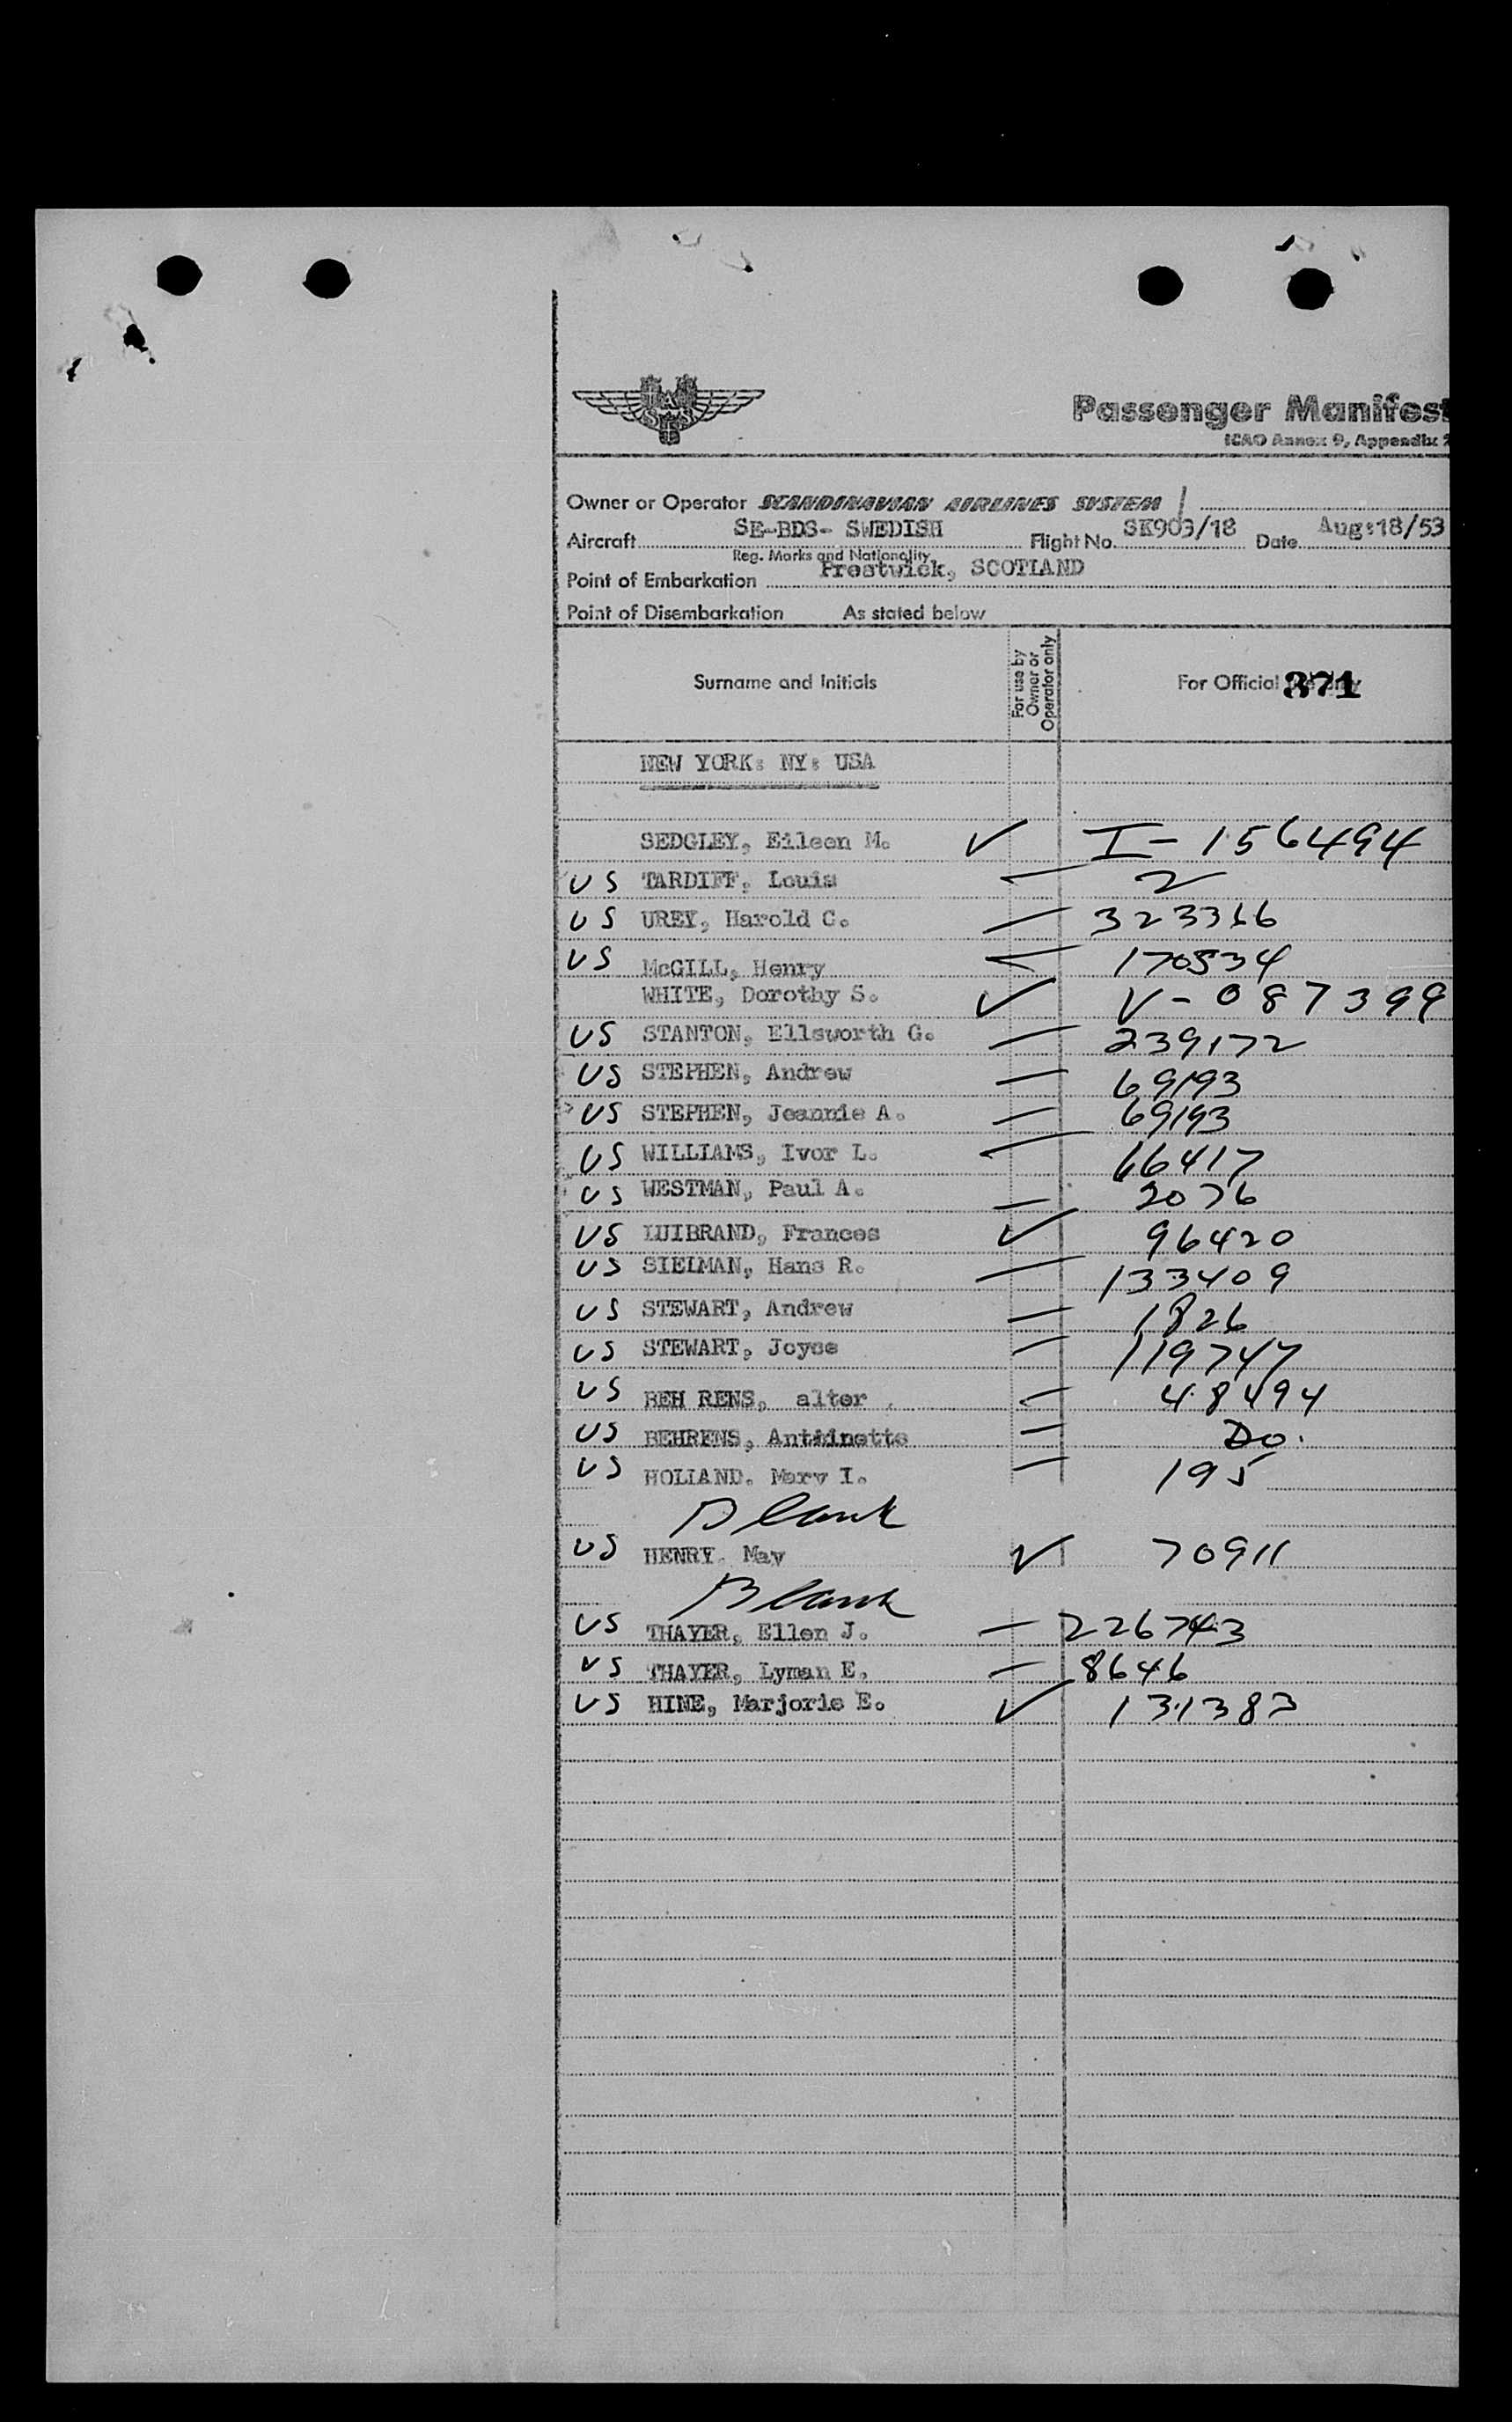 SAS
Passenger Manifest
ICAO Annex 9, Appendix 2
Owner or Operator SCANDINAVIAN AIRLINES SYSTEM
Aircraft SE-BDS- SWEDISH Flight No. SK903/18 Date Aug:18/53
Reg. Marks and Nationality
Point of Embarkation Prestwick, SCOTLAND
Point of Disembarkation As stated below
Surname and Initials For use by Owner or Operator only For Official 371
NEW YORK: NY: USA
SEDGLEY, Eileen M. ✓ I-156494
US TARDIFF, Louis 2
US UREY, Harold C. — 323366
US McGILL, Henry 170534
WHITE, Dorothy S. ✓ V-087399
US STANTON, Ellsworth G. — 239172
US STEPHEN, Andrew — 69193
US STEPHEN, Jeannie A. — 69193
US WILLIAMS, Ivor L. — 66417
US WESTMAN, Paul A. — 2076
US LUIBRAND, Frances ✓ 96420
US SIELMAN, Hans R. — 133409
US STEWART, Andrew — 1826
US STEWART, Joyce — 119747
US BEH RENS, alter — 48494
US BEHRENS, Antoinette — Do.
US HOLLAND. Mary I. — 195
Blank
US HENRY. May ✓ 70911
Blank
US THAYER, Ellen J. — 226743
US THAYER, Lyman E. — 8646
US HINE, Marjorie E. ✓ 131383